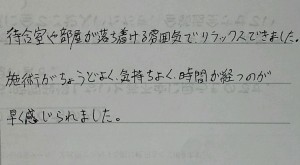 待合室や部屋が落ち着ける雰囲気でリラックスできました。
施術がちょうどよく、気持ちよく、時間が経つのが
早く感じられました。